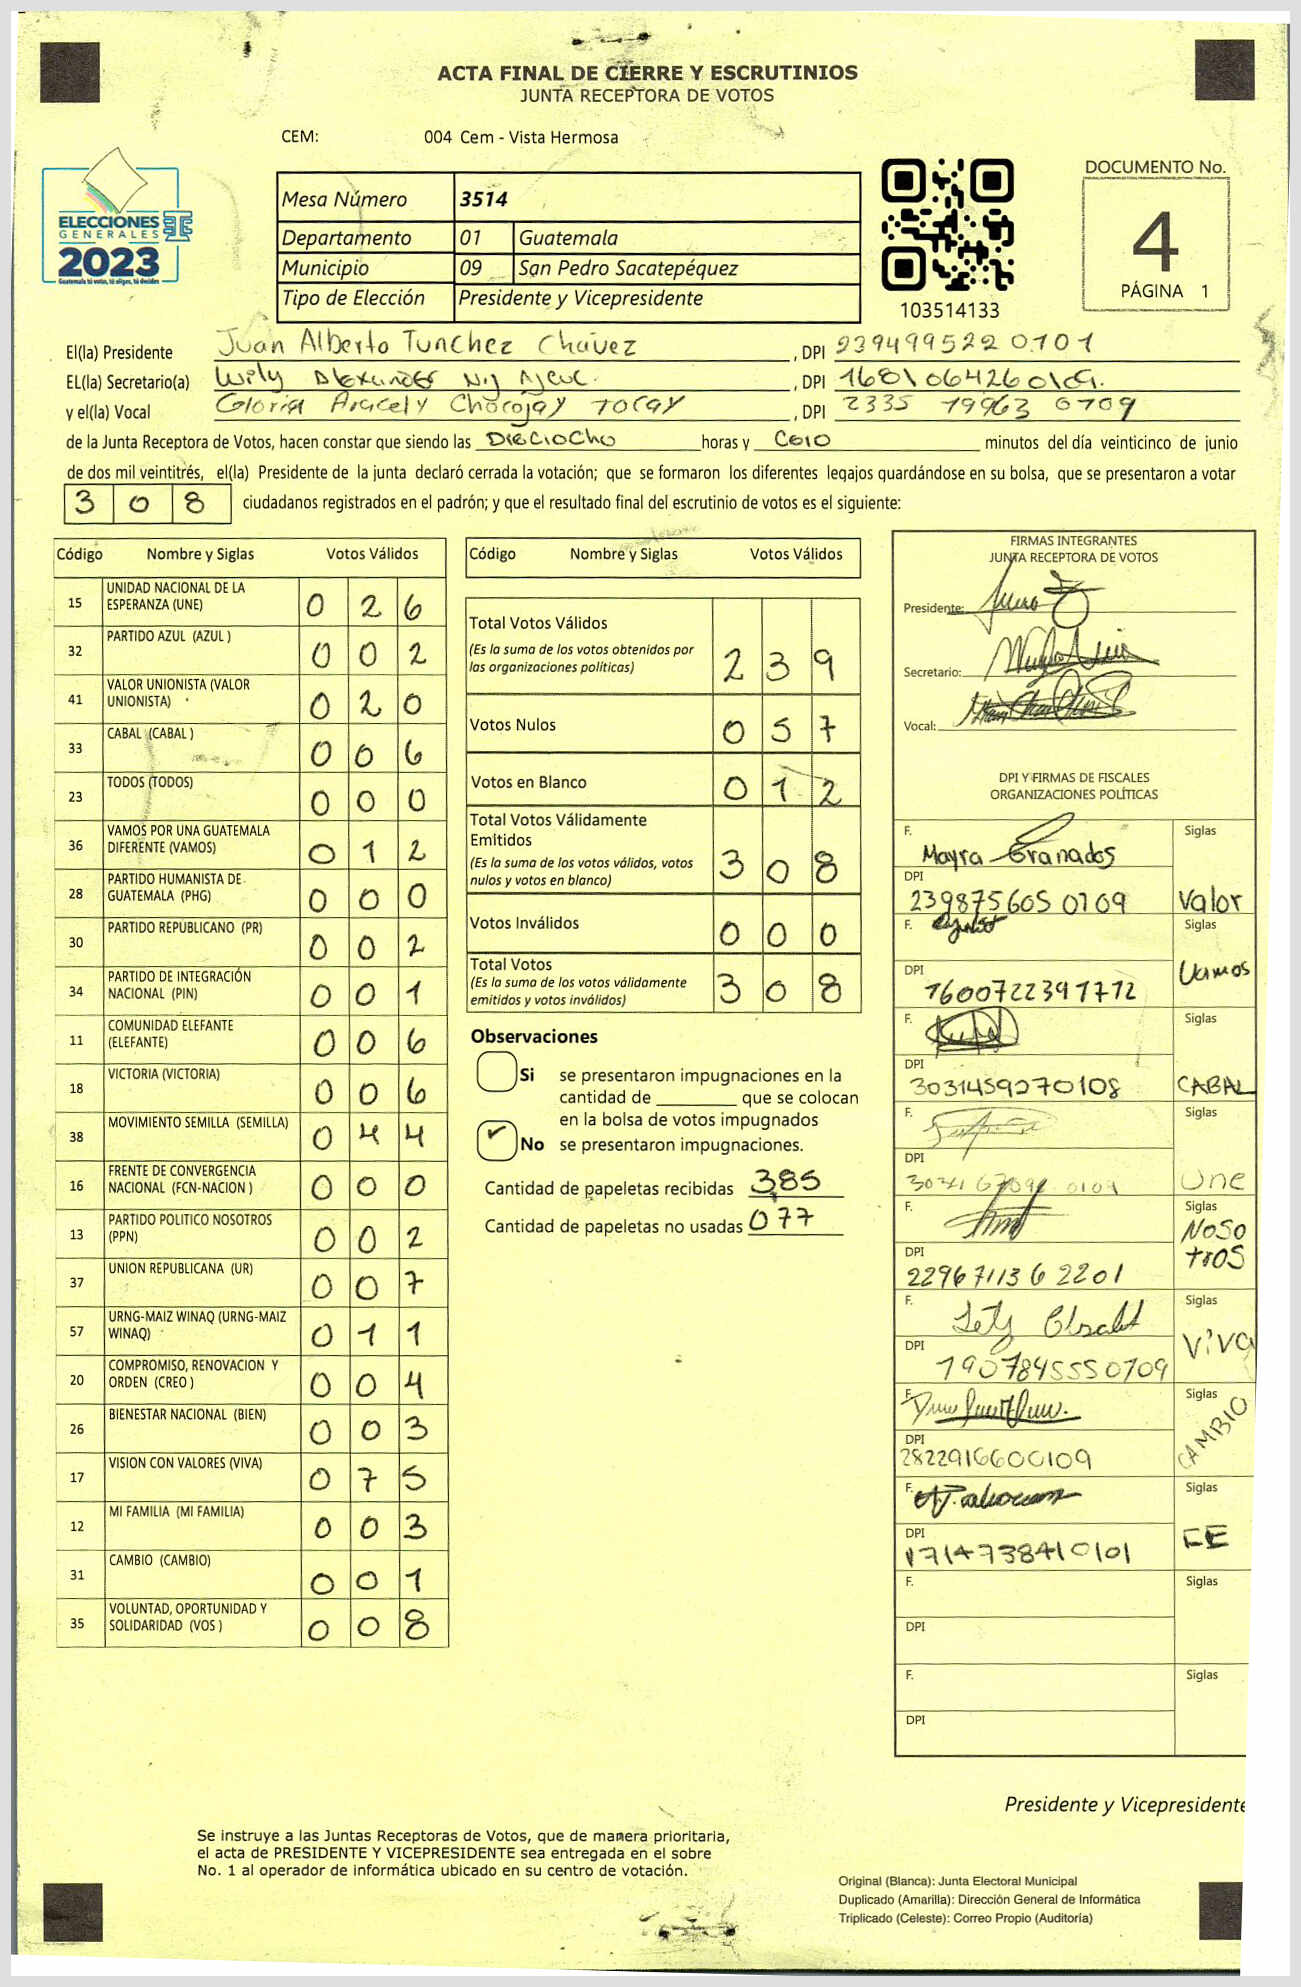 ACTA FINAL DE CIERRE Y ESCRUTINIOS
JUNTA RECEPTORA DE VOTOS
CEM: 004 Cem - Vista Hermosa
ELECCIONES
GENERALES
2023
Guatemala tú votas, tú eliges, tú decides
Mesa Número 3514
Departamento 01 Guatemala
Municipio 09 San Pedro Sacatepéquez
Tipo de Elección Presidente y Vicepresidente
103514133
DOCUMENTO No.
4
PÁGINA 1
El(la) Presidente Juan Alberto Tunchez Chávez , DPI 2394995220101
EL(la) Secretario(a) Wily Alexander , DPI 1681064260109.
y el(la) Vocal Gloria Aracely Chocojay Tocay , DPI 2335 19963 0709
de la Junta Receptora de Votos, hacen constar que siendo las DIECIOCHO horas y CERO minutos del día veinticinco de junio
de dos mil veintitrés, el(la) Presidente de la junta declaró cerrada la votación; que se formaron los diferentes legajos guardándose en su bolsa, que se presentaron a votar
308 ciudadanos registrados en el padrón; y que el resultado final del escrutinio de votos es el siguiente:
Código Nombre y Siglas Votos Válidos
15 UNIDAD NACIONAL DE LA ESPERANZA (UNE) 026
32 PARTIDO AZUL (AZUL ) 002
41 VALOR UNIONISTA (VALOR UNIONISTA) 020
33 CABAL (CABAL ) 006
23 TODOS (TODOS) 000
36 VAMOS POR UNA GUATEMALA DIFERENTE (VAMOS) 012
28 PARTIDO HUMANISTA DE GUATEMALA (PHG) 000
30 PARTIDO REPUBLICANO (PR) 002
34 PARTIDO DE INTEGRACIÓN NACIONAL (PIN) 001
11 COMUNIDAD ELEFANTE (ELEFANTE) 006
18 VICTORIA (VICTORIA) 006
38 MOVIMIENTO SEMILLA (SEMILLA) 044
16 FRENTE DE CONVERGENCIA NACIONAL (FCN-NACION ) 000
13 PARTIDO POLITICO NOSOTROS (PPN) 002
37 UNION REPUBLICANA (UR) 007
57 URNG-MAIZ WINAQ (URNG-MAIZ WINAQ) 011
20 COMPROMISO, RENOVACION Y ORDEN (CREO ) 004
26 BIENESTAR NACIONAL (BIEN) 003
17 VISION CON VALORES (VIVA) 075
12 MI FAMILIA (MI FAMILIA) 003
31 CAMBIO (CAMBIO) 001
35 VOLUNTAD, OPORTUNIDAD Y SOLIDARIDAD (VOS ) 008
Código Nombre y Siglas Votos Válidos
Total Votos Válidos 239
(Es la suma de los votos obtenidos por
las organizaciones políticas)
Votos Nulos 057
Votos en Blanco 012
Total Votos Válidamente
Emitidos 308
(Es la suma de los votos válidos, votos
nulos y votos en blanco)
Votos Inválidos 000
Total Votos 308
(Es la suma de los votos válidamente
emitidos y votos inválidos)
Observaciones
Si se presentaron impugnaciones en la
cantidad de ________ que se colocan
en la bolsa de votos impugnados
✓ No se presentaron impugnaciones.
Cantidad de papeletas recibidas 385
Cantidad de papeletas no usadas 077
FIRMAS INTEGRANTES
JUNTA RECEPTORA DE VOTOS
Presidente:
Secretario:
Vocal:
DPI Y FIRMAS DE FISCALES
ORGANIZACIONES POLÍTICAS
F. Mayra Granados Siglas
DPI 239875605 0109 Valor
F. Siglas
DPI 1600722391712 Vamos
F. Siglas
DPI 3031459270108 CABAL
F. Siglas
DPI Une
F. Siglas
DPI 229671136 2201 NOSOTROS
F. Siglas
DPI 1907845550109 VIVA
F. Siglas
DPI 2822916600109 CAMBIO
F. Siglas
DPI 1714738410101 FE
F. Siglas
DPI
F. Siglas
DPI
Presidente y Vicepresidente
Se instruye a las Juntas Receptoras de Votos, que de manera prioritaria,
el acta de PRESIDENTE Y VICEPRESIDENTE sea entregada en el sobre
No. 1 al operador de informática ubicado en su centro de votación.
Original (Blanca): Junta Electoral Municipal
Duplicado (Amarilla): Dirección General de Informática
Triplicado (Celeste): Correo Propio (Auditoría)